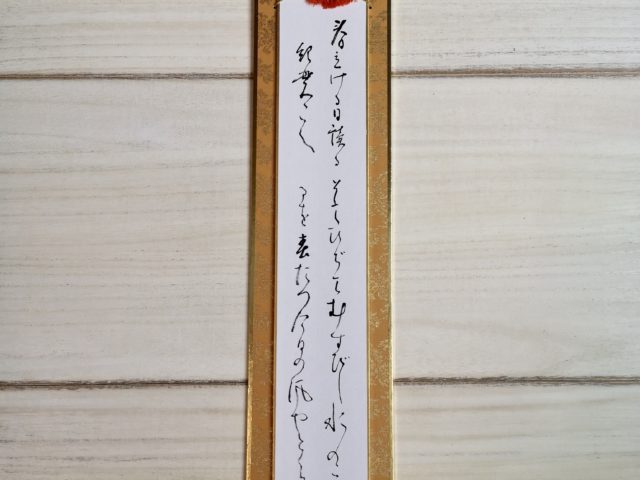 春立ける日読る
そでひぢてむすびし水のこ
紀貫之
るを春たつけふの風やとくら